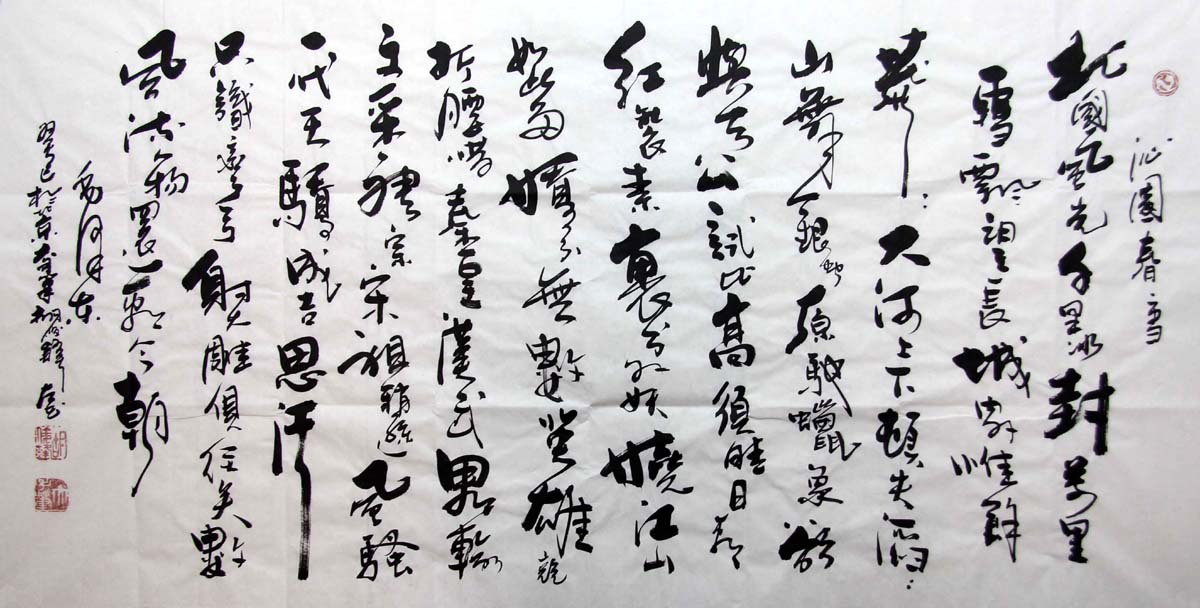 沁園春雪
北國風光千里冰封萬里
雪飄望長城內外惟餘
莽〻大河上下頓失滔〻
山舞銀蛇原馳蠟象欲
與天公試比高須晴日看
紅裝素裹分外妖嬈江山
如此多嬌引無數英雄競
折腰惜秦皇漢武略輸
文采唐宗宋祖稍遜風騷
一代天驕成吉思汗
只識彎弓射雕俱往矣數
風流人物還看今朝
毛澤東
癸巳於